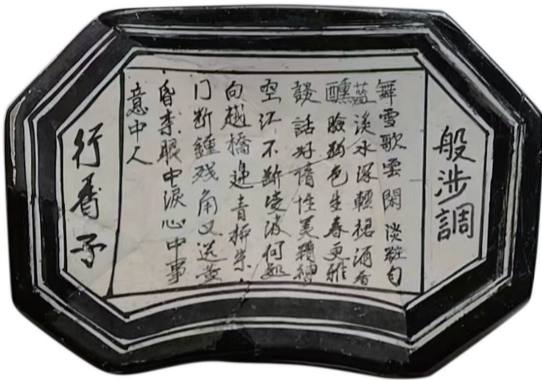 般涉調
舞雪歌雲閑淡粧勻
藍淡水深輕裙酒香
醺臉粉色生春更雅
談話好情性美精神
空江不斷凌波何處
向越橋邊青柳朱
门断鍾残角又送黄
昏奈眼中淚心中事
意中人
行香子